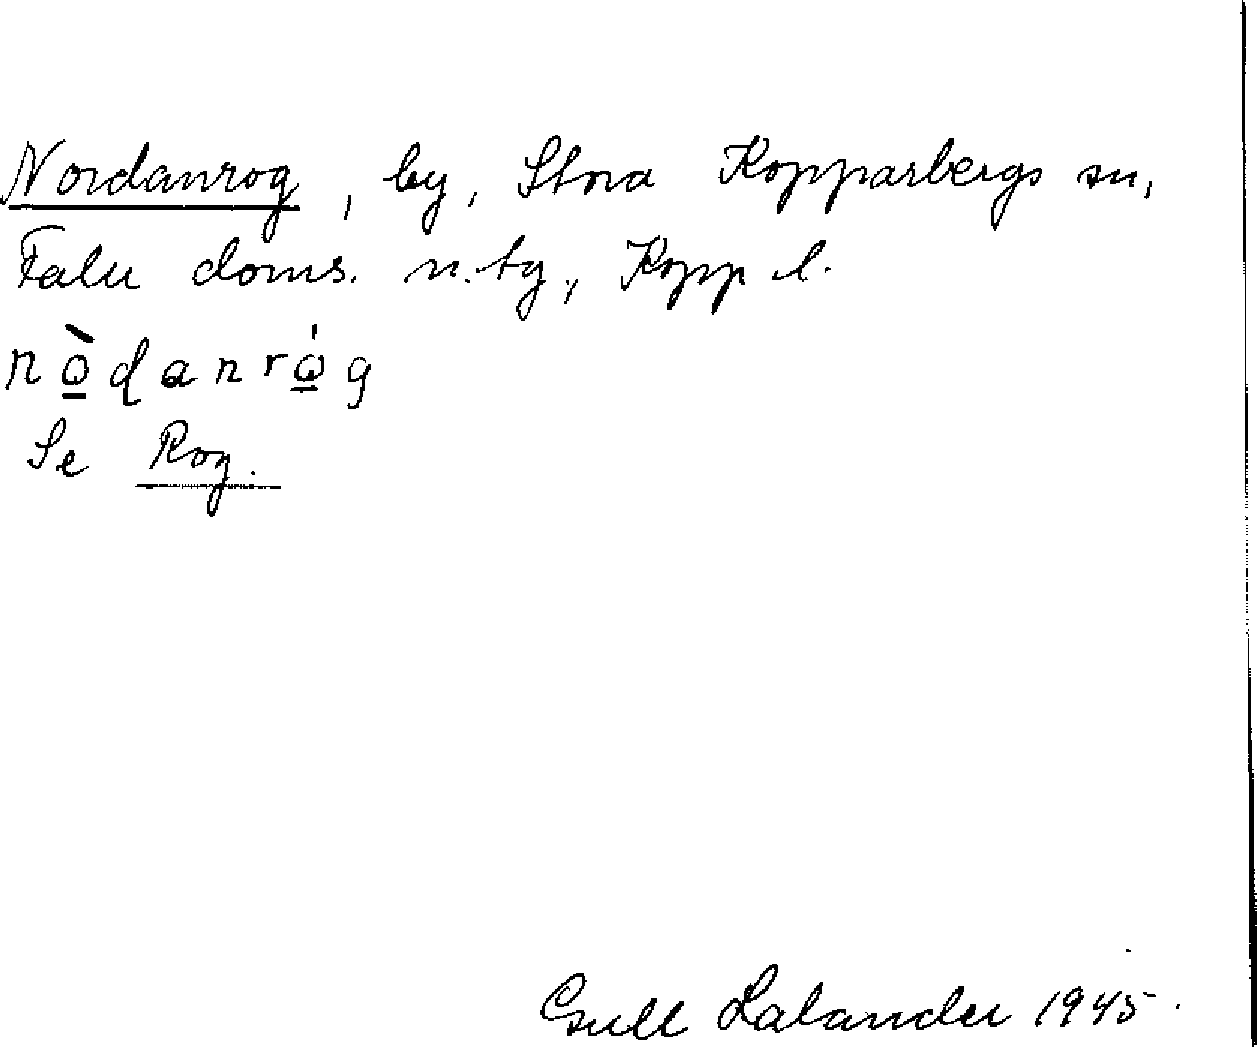 Nordanrog, by, Stora Kopparbergs sn,
Falu doms. n. tg, Kopp l.
nò̲danrò̲g
Se Rog.
Gull Lalander 1945.